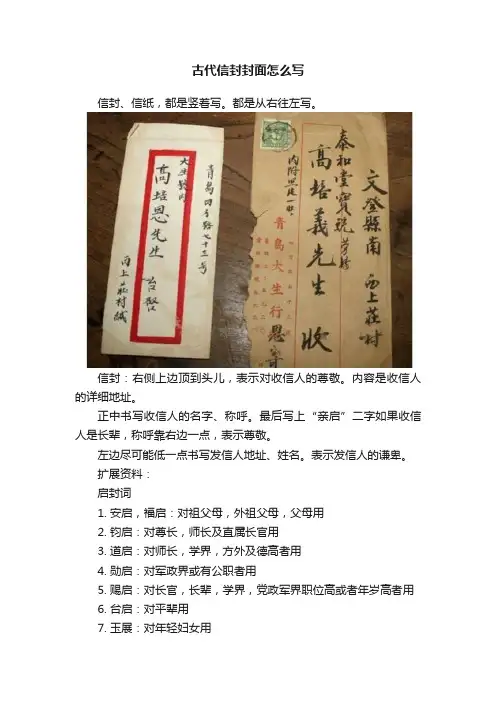 古代信封封面怎么写
信封、信纸，都是竖着写。都是从右往左写。
青島四方路七十三号
大生號内
高培恩先生 台啓
西上莊村緘
文登縣南 西上莊村
泰和堂寶號
高培義先生 收
青島大生行
信封：右侧上边顶到头儿，表示对收信人的尊敬。内容是收信人
的详细地址。
正中书写收信人的名字、称呼。最后写上“亲启”二字如果收信
人是长辈，称呼靠右边一点，表示尊敬。
左边尽可能低一点书写发信人地址、姓名。表示发信人的谦卑。
扩展资料：
启封词
1. 安启，福启：对祖父母，外祖父母，父母用
2. 钧启：对尊长，师长及直属长官用
3. 道启：对师长，学界，方外及德高者用
4. 勋启：对军政界或有公职者用
5. 赐启：对长官，长辈，学界，党政军界职位高或者年岁高者用
6. 台启：对平辈用
7. 玉展：对年轻妇女用